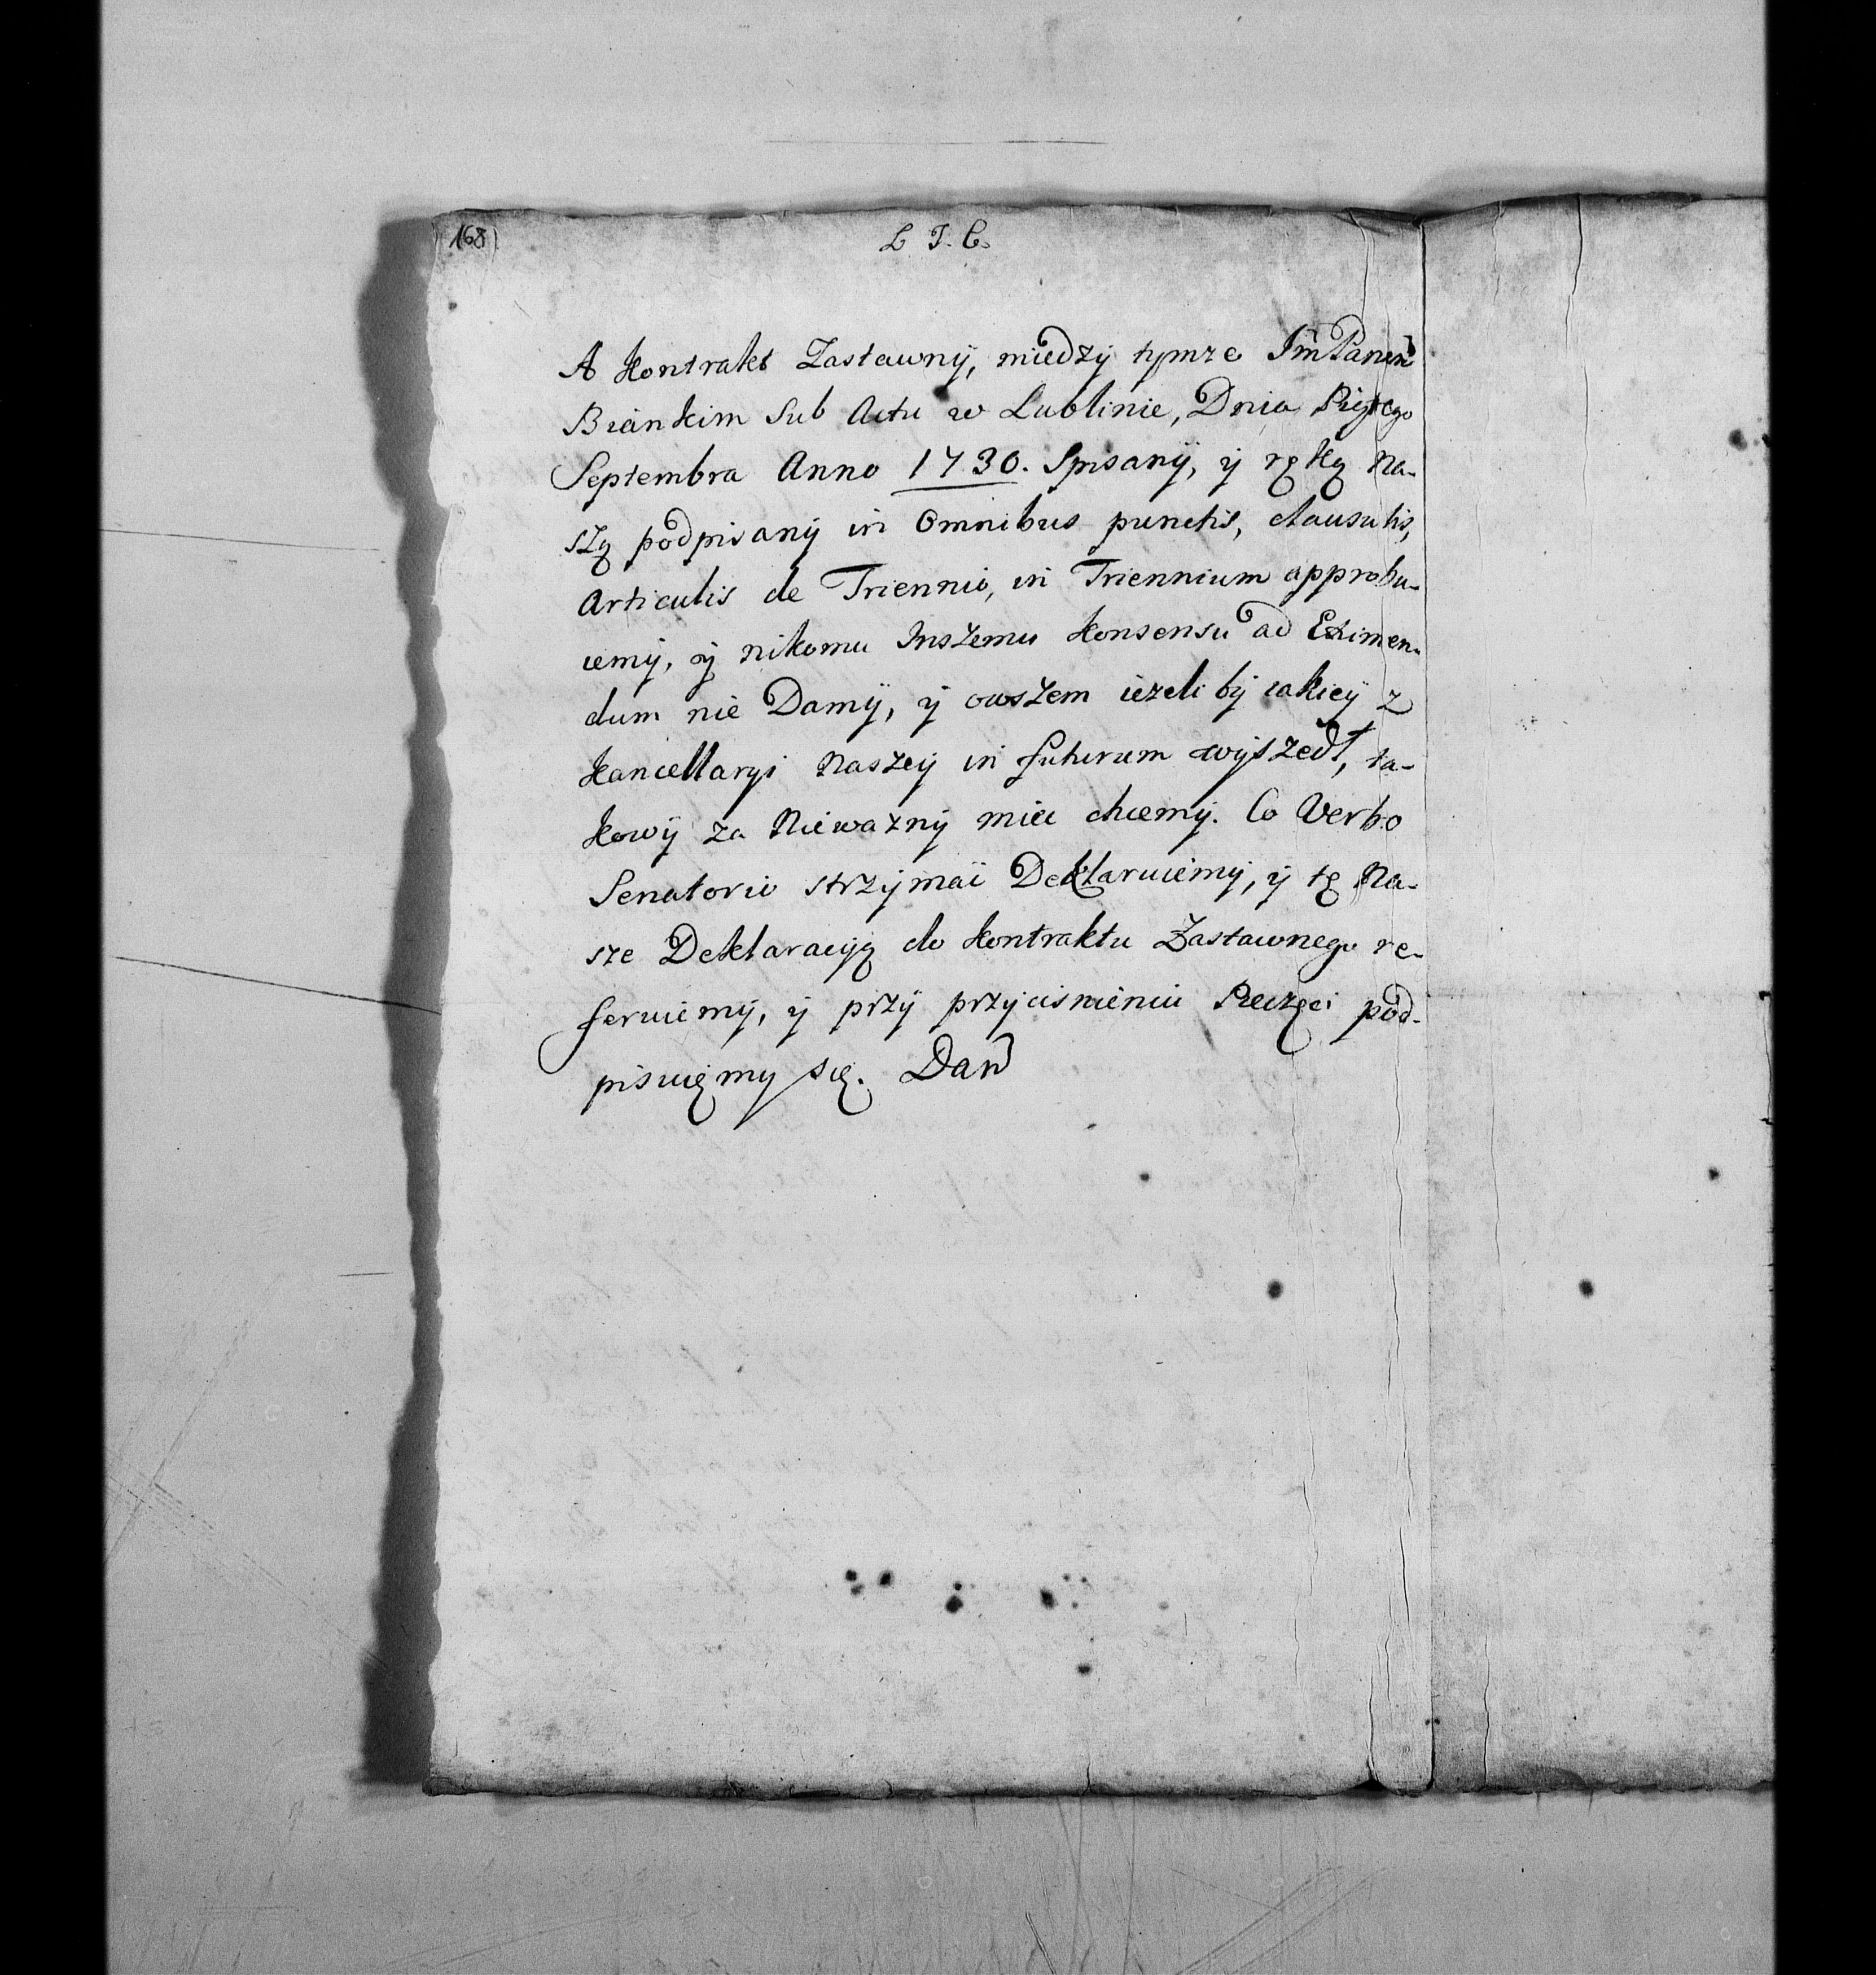 168
L J. C.
A Kontrakt Zastawnÿ, miedzÿ tymze Jm̃ Panem
Biankim Sub Actu w Lublinie, Dnia Piątego
Septembra Anno 1730. Spisanÿ, ÿ ręką Na-
szą podpisanÿ in Omnibus punctis, clausulis,
Articulis de Triennio, in Triennium approbu-
iemÿ, ÿ nikomu Inszemu Konsensu ad Eximen-
dum nie Damÿ, ÿ owszem iezeli bÿ iakieÿ z
Kancellaryi Naszeÿ in futurum wÿszedł, ta-
kowÿ za Niewaznÿ miec chcemÿ. Co Verbo
Senatorio strzÿmac Deklaruiemÿ, ÿ tę Na-
sze Deklaracÿą do Kontraktu Zastawnego re-
feruiemÿ, ÿ przÿ przÿcisnieniu Pieczęci pod-
pisuięmy się. Dań